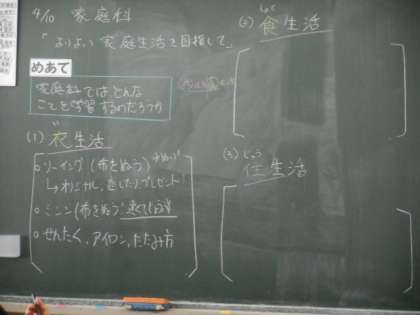 4/10 家庭科
「よりよい家庭生活を目指して」
めあて
家庭科では、どんな
ことを学習するのだろうか
(1) 衣生活
○ソーイング(布をぬう)
オリジナル、
○ミシン(布をぬう
○せんたく、アイロン、たたみ方
(2) 食生活
しょく
(3) 住生活
じゅう